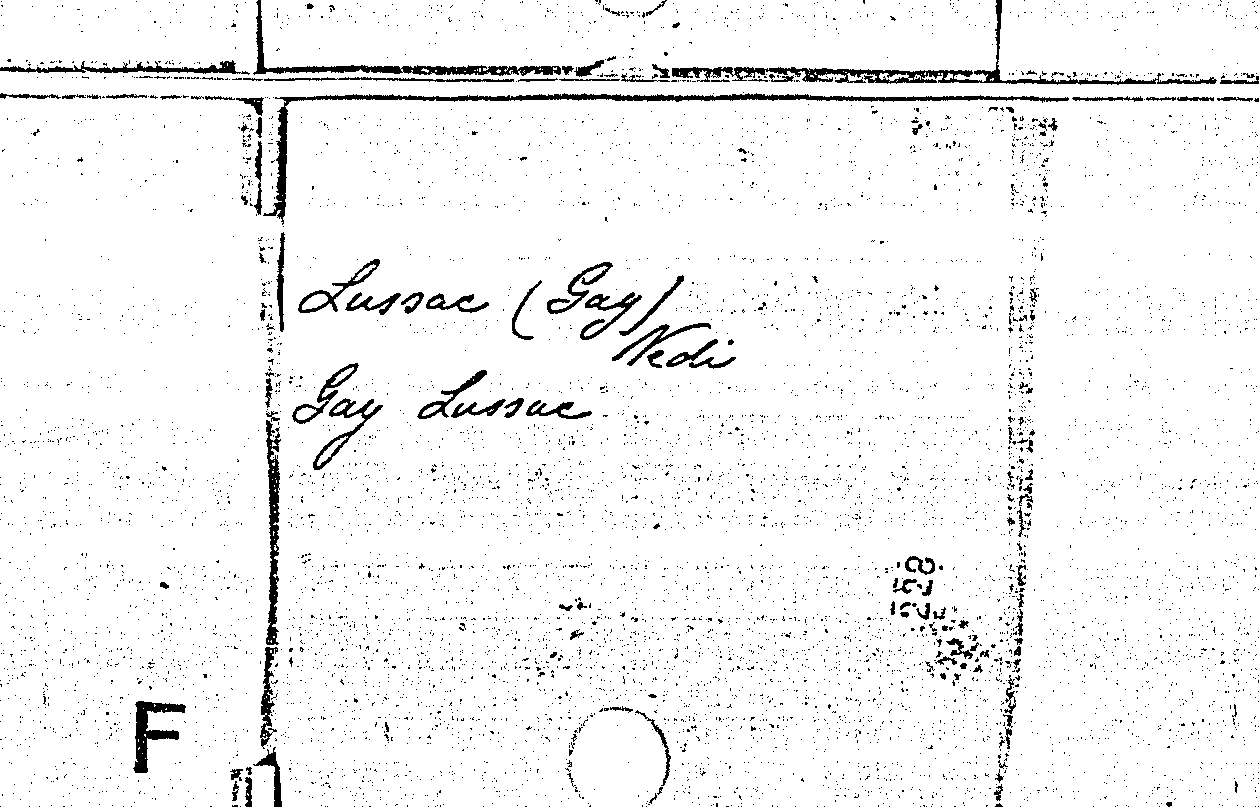 Lussac (Gay)
Vedi
Gay Lussac
F